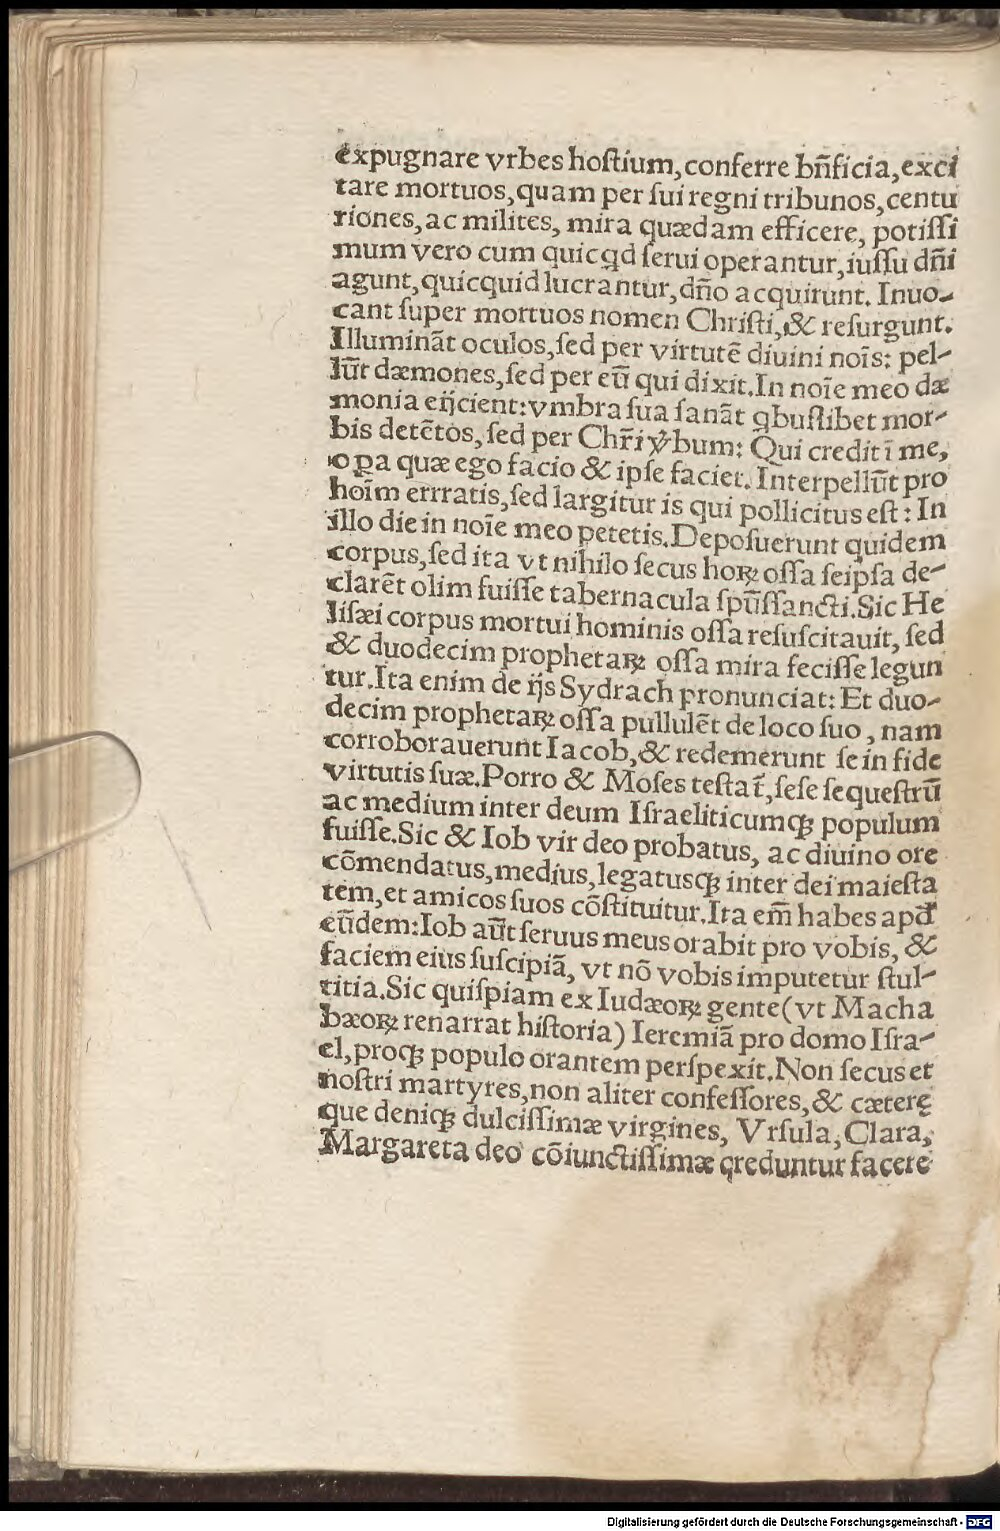 expugnare vrbes hoſtium, conferre bñficia, exci
tare mortuos, quam per ſui regni tribunos, centu
riones, ac milites, mira quædam efficere, potiſſi
mum vero cum quicqd ſerui operantur, iuſſu dñi
agunt, quicquid lucrantur, dño acquirunt. Inuo-
cant ſuper mortuos nomen Chriſti, & reſurgunt.
Illuminãt oculos, ſed per virtutẽ diuini noĩs: pel-
lũt dæmones, ſed per eũ qui dixit. In noĩe meo dæ
monia eijcient: vmbra ſua ſanãt qbuſlibet mor-
bis detẽtos, ſed per Chr̃i v̓bum: Qui credit ĩ me,
oꝑa quæ ego facio & ipſe faciet. Interpellũt pro
hoĩm errratis, ſed largitur is qui pollicitus eſt: In
illo die in noĩe meo petetis. Depoſuerunt quidem
corpus, ſed ita vt nihilo ſecus hoꝝ oſſa ſeipſa de-
clarẽt olim fuiſſe tabernacula ſpũſſancti. Sic He
liſæi corpus mortui hominis oſſa reſuſcitauit, ſed
& duodecim prophetaꝝ oſſa mira feciſſe legun
tur. Ita enim de ijs Sydrach pronunciat: Et duo-
decim prophetaꝝ oſſa pullulẽt de loco ſuo, nam
corroborauerunt Iacob, & redemerunt ſe in fide
virtutis ſuæ. Porro & Moſes teſtat̃, ſeſe ſequeſtrũ
ac medium inter deum Iſraeliticumqꝫ populum
fuiſſe. Sic & Iob vir deo probatus, ac diuino ore
cõmendatus, medius, legatusqꝫ inter dei maieſta
tem, et amicos ſuos cõſtituitur. Ita em̃ habes apd̃
eũdem: Iob aũt ſeruus meus orabit pro vobis, &
faciem eius ſuſcipiã, vt nõ vobis imputetur ſtul-
titia. Sic quiſpiam ex Iudæoꝝ gente (vt Macha
bæoꝝ renarrat hiſtoria) Ieremiã pro domo Iſra-
el, proqꝫ populo orantem perſpexit. Non ſecus et
noſtri martyres, non aliter confeſſores, & cæterę
que deniqꝫ dulciſſimæ virgines, Vrſula, Clara,
Margareta deo cõiunctiſſimæ creduntur facere
Digitalisierung gefördert durch die Deutsche Forschungsgemeinschaft - DFG